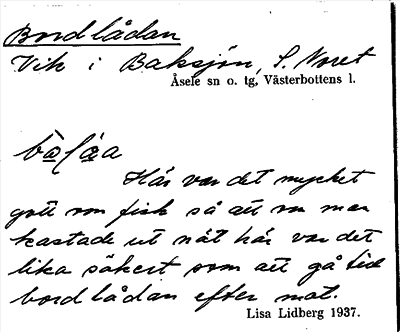 Bordlådan
Vik i Baksjön, S. Noret
Åsele sn o. tg, Västerbottens l.
Här var det mycket
gott om fisk så att om man
kastade ut nåt här var det
lika säkert som att gå till
bordlådan efter mat.
Lisa Lidberg 1937.